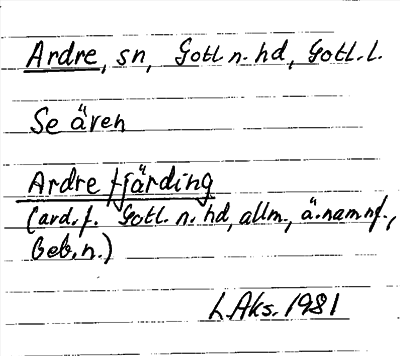 Ardre, sn, Gotl. n. hd, Gotl. l.
Se även
Ardre fjärding
(avd. f. Gotl. n. hd, allm., ä. namnf.,
Beb. n.)
L Aks. 1981